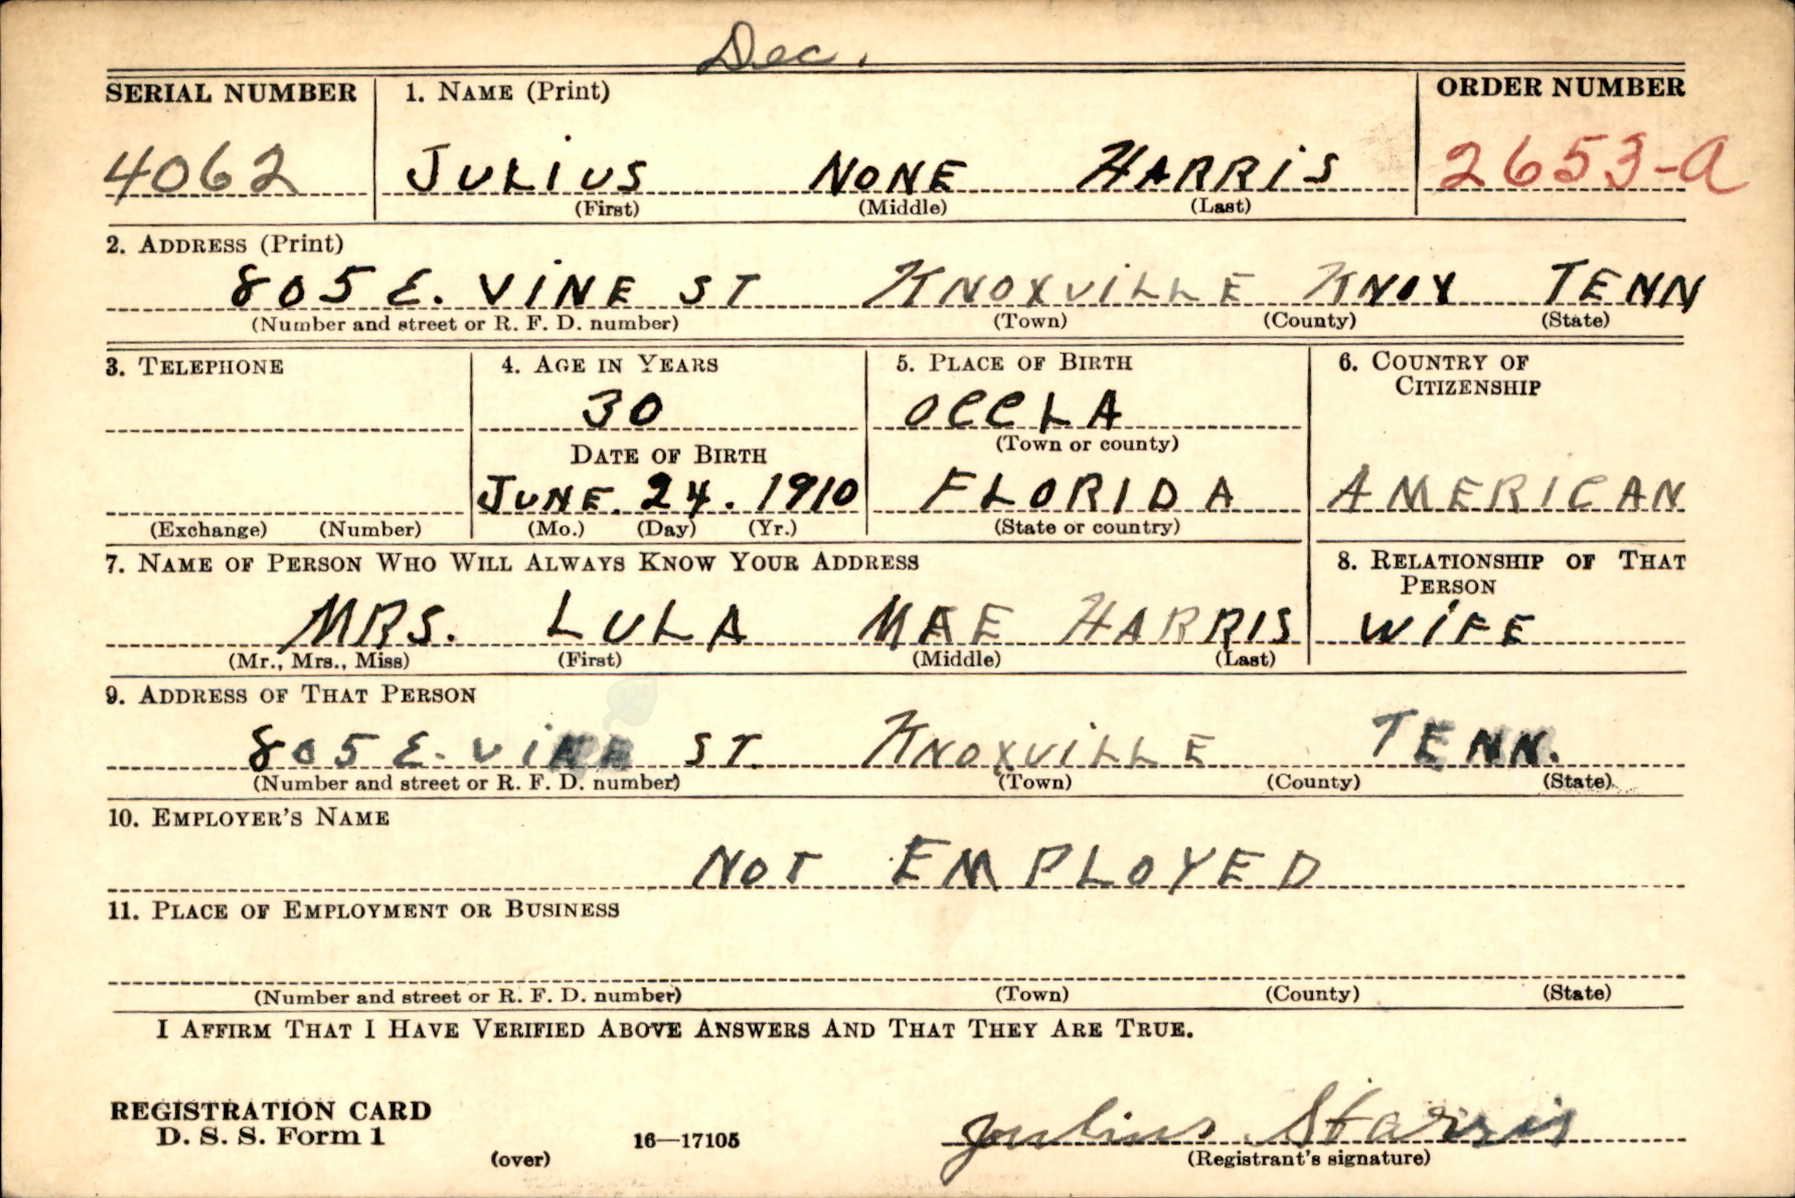 Dec.
SERIAL NUMBER 1. NAME (Print) ORDER NUMBER
4062 JULIUS NONE HARRIS 2653-A
(First) (Middle) (Last)
2. ADDRESS (Print)
805 E. VINE ST KNOXVILLE KNOX TENN
(Number and street or R. F. D. number) (Town) (County) (State)
3. TELEPHONE 4. AGE IN YEARS 5. PLACE OF BIRTH 6. COUNTRY OF
CITIZENSHIP
30 OCCLA
(Town or county)
DATE OF BIRTH
JUNE. 24. 1910 FLORIDA AMERICAN
(Exchange) (Number) (Mo.) (Day) (Yr.) (State or country)
7. NAME OF PERSON WHO WILL ALWAYS KNOW YOUR ADDRESS 8. RELATIONSHIP OF THAT
PERSON
MRS. LULA MAE HARRIS WIFE
(Mr., Mrs., Miss) (First) (Middle) (Last)
9. ADDRESS OF THAT PERSON
805 E. VINE ST. KNOXVILLE TENN.
(Number and street or R. F. D. number) (Town) (County) (State)
10. EMPLOYER'S NAME
NOT EMPLOYED
11. PLACE OF EMPLOYMENT OR BUSINESS
(Number and street or R. F. D. number) (Town) (County) (State)
I AFFIRM THAT I HAVE VERIFIED ABOVE ANSWERS AND THAT THEY ARE TRUE.
REGISTRATION CARD
D. S. S. Form 1 16—17105 Julius Harris
(over) (Registrant's signature)